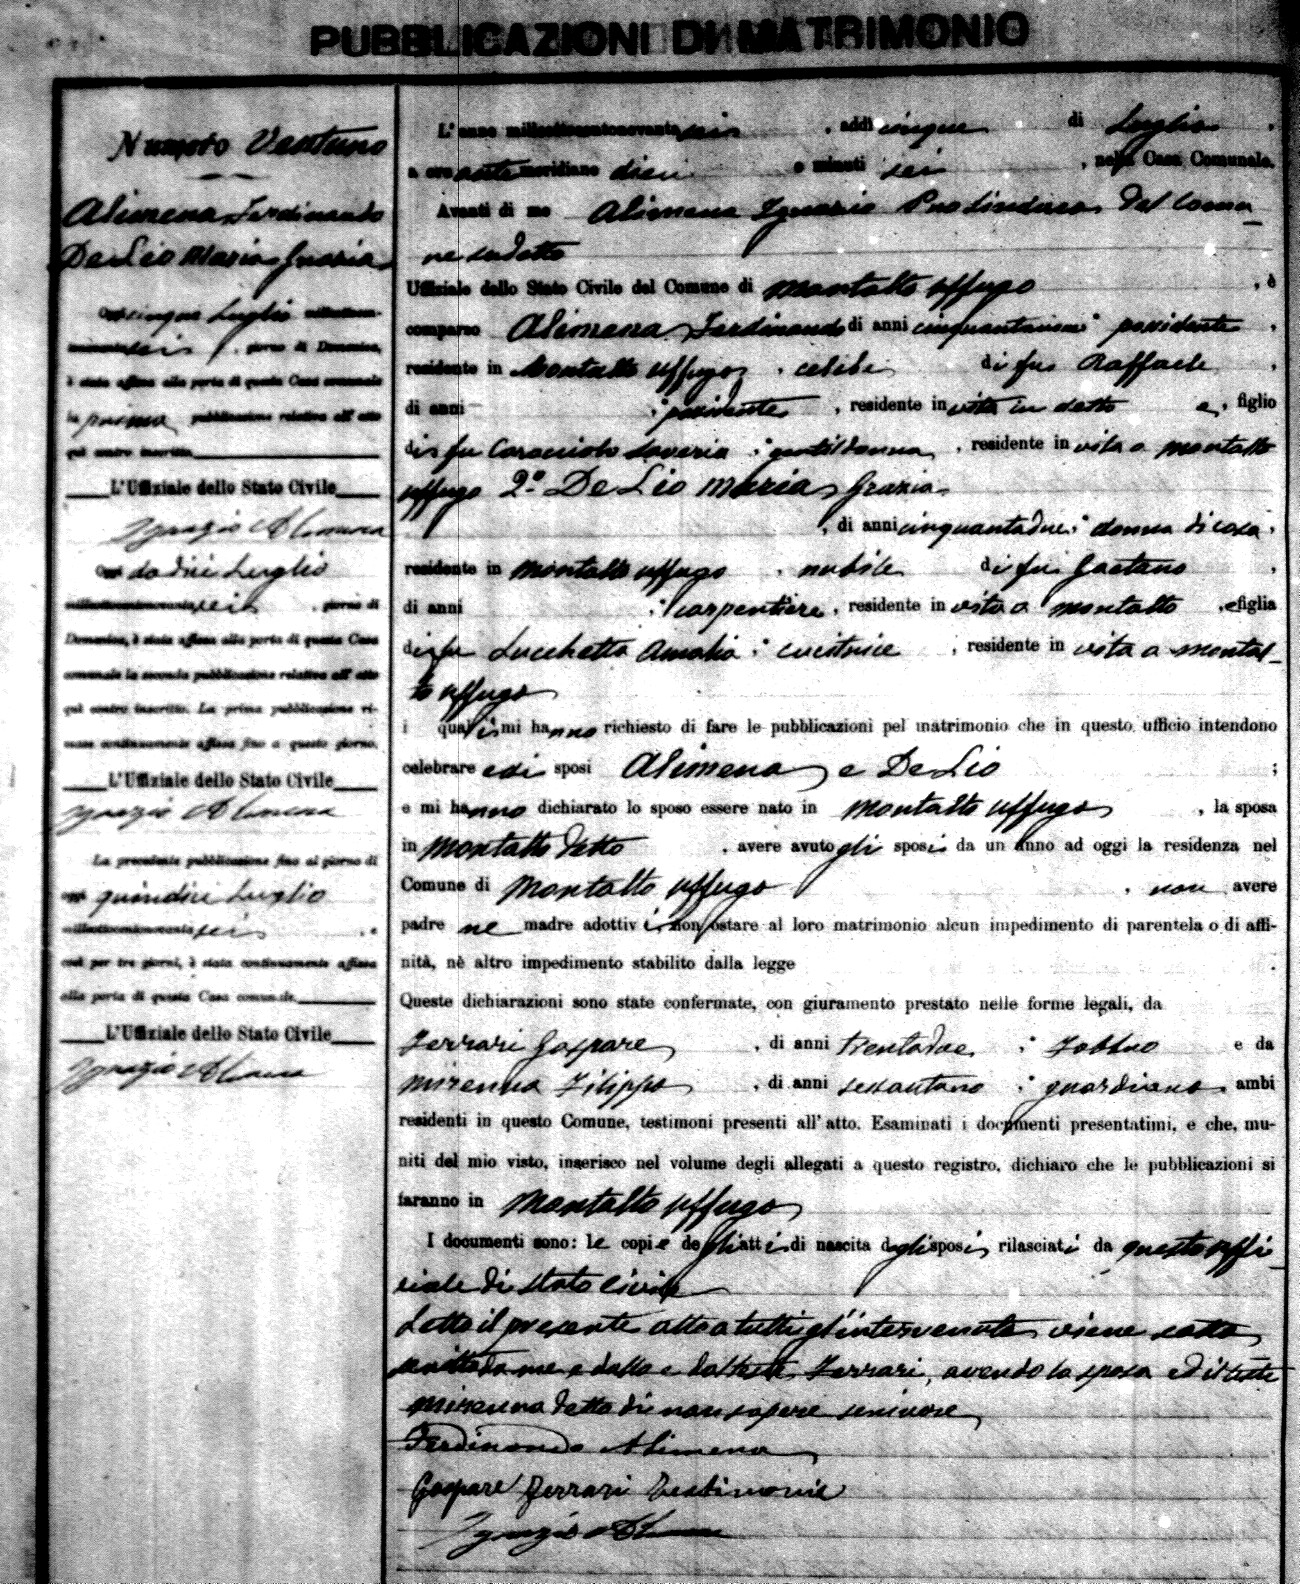 PUBBLICAZIONI DI MATRIMONIO
Numero Ventuno
Alimena Ferdinando
De Lio Maria Grazia
Oggi cinque Luglio millottocen-
tonovantasei, giorno di Domenica,
è stata affissa alla porta di questa Casa comunale
la prima pubblicazione relativa all'atto
qui contro inscritto
L'Uffiziale dello Stato Civile
Ignazio Alimena
Oggi dodici Luglio
millottocentonovantasei, giorno di
Domenica, è stata affissa alla porta di questa Casa
comunale la seconda pubblicazione relativa all'atto
qui contro inscritto. La prima pubblicazione ri-
mase continuamente affissa fino a questo giorno.
L'Uffiziale dello Stato Civile
Ignazio Alimena
La precedente pubblicazione fino al giorno di
oggi quindici Luglio
millottocentonovantasei, e
così per tre giorni, è stata continuamente affissa
alla porta di questa Casa comunale.
L'Uffiziale dello Stato Civile
Ignazio Alimena
L'anno millottocentonovantasei, addì cinque di Luglio,
a ore antemeridiane dieci e minuti sei, nella Casa Comunale.
Avanti di me Alimena Ignazio Prosindaco del Comu-
ne sudetto
Uffiziale dello Stato Civile del Comune di Montalto Uffugo, è
comparso Alimena Ferdinando di anni : possidente,
residente in Montalto Uffugo, celibe di fu Raffaele,
di anni : possidente, residente in vita in detto e, figlio
di fu Caracciolo Saveria : gentildonna, residente in vita a Montalto
Uffugo 2º De Lio Maria Grazia
, di anni cinquantadue : donna di casa,
residente in Montalto Uffugo, nubile di fu Gaetano,
di anni : carpentiere, residente in vita a Montalto, e figlia
di fu Lucchetta Amalia : cucitrice, residente in vita a Montal-
to Uffugo
i quali mi hanno richiesto di fare le pubblicazioni pel matrimonio che in questo ufficio intendono
celebrare essi sposi Alimena e De Lio ;
e mi hanno dichiarato lo sposo essere nato in Montalto Uffugo, la sposa
in Montalto detto, avere avuto gli sposi da un anno ad oggi la residenza nel
Comune di Montalto Uffugo, non avere
padre ne madre adottivi, non ostare al loro matrimonio alcun impedimento di parentela o di affi-
nità, nè altro impedimento stabilito dalla legge.
Queste dichiarazioni sono state confermate, con giuramento prestato nelle forme legali, da
Ferrari Gaspare, di anni trentadue : fabbro e da
Mirenna Filippo, di anni sessantuno : guardiano ambi
residenti in questo Comune, testimoni presenti all'atto. Esaminati i documenti presentatimi, e che, mu-
niti del mio visto, inserisco nel volume degli allegati a questo registro, dichiaro che le pubblicazioni si
faranno in Montalto Uffugo
I documenti sono: le copie degli atti di nascita degli sposi, rilasciati da questo Uffi-
ciale di stato civile
Letto il presente atto a tutti gl'intervenuti viene sotto
scritto da me e dallo e dal teste Ferrari, avendo la sposa ed il teste
Mirenna detto di non sapere scrivere
Ferdinando Alimena
Gaspare Ferrari Testimonie
Ignazio Alimena